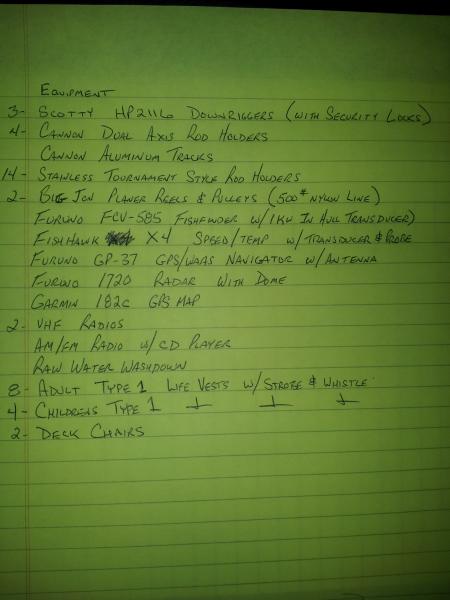 Equipment
3- Scotty HP2116 Downriggers (with Security Locks)
4- Cannon Dual Axis Rod Holders
Cannon Aluminum Tracks
14- Stainless Tournament Style Rod Holders
2- Big Jon Planer Reels & Pulleys (500# nylon Line)
Furuno FCV-585 Fishfinder w/1KW In Hull Transducer)
Fishhawk X4 Speed/Temp w/Transducer & Probe
Furuno GP-37 GPS/WAAS Navigator w/Antenna
Furuno 1720 Radar with Dome
Garmin 182c GPS Map
2- VHF Radios
AM/FM Radio w/CD Player
Raw Water Washdown
8- Adult Type 1 Life Vests w/Strobe & Whistle
4- Childrens Type 1
2- Deck Chairs